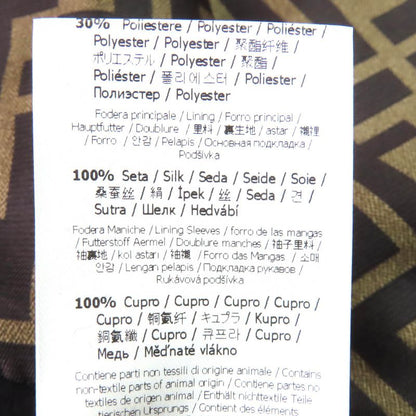 30% Poliestere / Polyester / Poliéster /
Polyester / Polyester / 聚酯纤维 /
ポリエステル / Polyester / 聚酯 /
Poliéster / 폴리에스터 / Poliester /
Полиэстер / Polyester
Fodera principale / Lining / Forro principal /
Hauptfutter / Doublure / 里料 / 裏生地 / astar / 襯裡
/ Forro / 안감 / Pelapis / Основная подкладка /
Podšívka
100% Seta / Silk / Seda / Seide / Soie /
桑蚕丝 / 絹 / İpek / 丝 / Seda / 견 /
Sutra / Шелк / Hedvábí
Fodera Maniche / Lining Sleeves / forro de las mangas
/ Futterstoff Aermel / Doublure manches / 袖子里料 /
袖裏地 / kol astari / 袖襯 / Forro das Mangas / 소매
안감 / Lengan pelapis / Подкладка рукавов /
Rukávová podšívka
100% Cupro / Cupro / Cupro / Cupro /
Cupro / 铜氨纤 / キュプラ / Kupro /
銅氨纖 / Cupro / 큐프라 / Cupro /
Медь / Měďnaté vlákno
Contiene parti non tessili di origine animale / Contains
non-textile parts of animal origin / Contiene partes no
textiles de origen animal / Enthält nichttextile Teile
tierischen Ursprungs / Contient des éléments